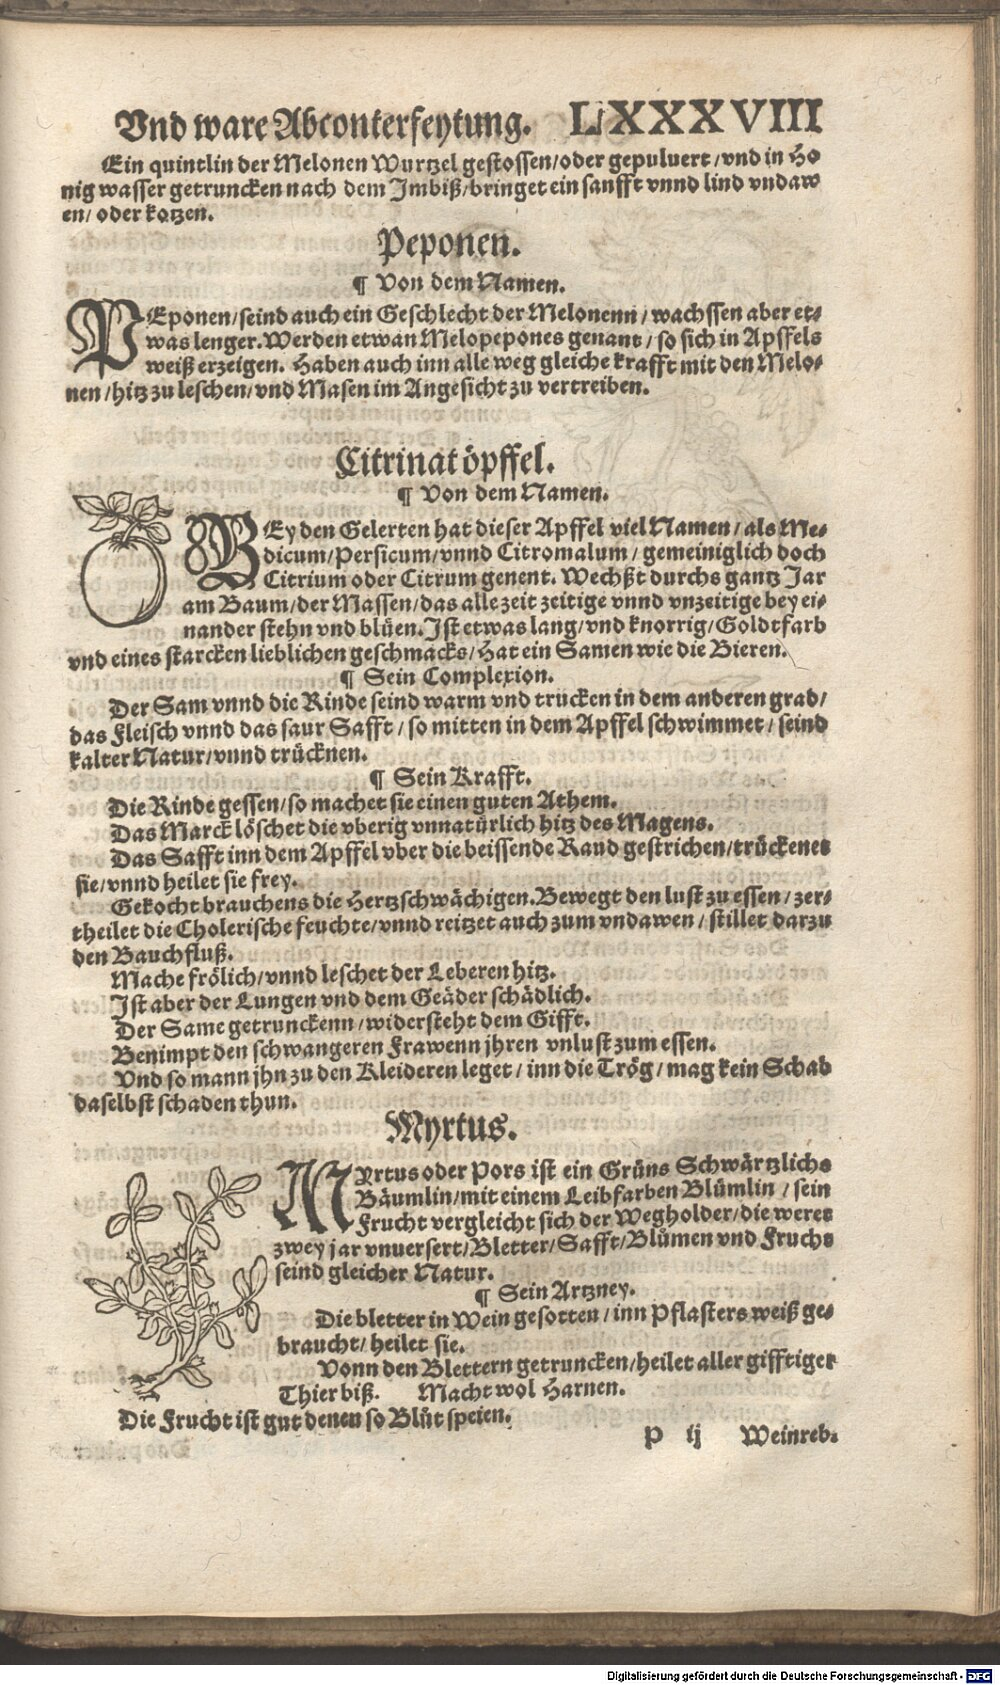 Vnd ware Abconterfeytung. LXXXVIII
Ein quintlin der Melonen Wurtzel gestossen/oder gepuluert/vnd in Ho
nig wasser getruncken nach dem Jmbiß/bringet ein sanfft vnnd lind vndaw
en/oder kotzen.
Peponen.
¶ Von dem Namen.
PEponen/seind auch ein Geschlecht der Melonenn/wachssen aber et-
was lenger. Werden etwan Melopepones genant/so sich in Apffels
weiß erzeigen. Haben auch inn alle weg gleiche krafft mit den Melo-
nen/hitz zu leschen/vnd Masen im Angesicht zu vertreiben.
Citrinatöpffel.
¶ Von dem Namen.
BEy den Gelerten hat dieser Apffel viel Namen/als Me-
dicum/Persicum/vnnd Citromalum/gemeiniglich doch
Citrium oder Citrum genent. Wechßt durchs gantz Jar
am Baum/der Massen/das allezeit zeitige vnnd vnzeitige bey ei-
nander stehn vnd blüen. Jst etwas lang/vnd knorrig/Goldtfarb
vnd eines starcken lieblichen geschmacks/Hat ein Samen wie die Bieren.
¶ Sein Complexion.
Der Sam vnnd die Rinde seind warm vnd trucken in dem anderen grad/
das Fleisch vnnd das saur Safft/so mitten in dem Apffel schwimmet/seind
kalter Natur/vnnd trücknen.
¶ Sein Krafft.
Die Rinde gessen/so machet sie einen guten Athem.
Das Marck löschet die vberig vnnatürlich hitz des Magens.
Das Safft inn dem Apffel vber die beissende Raud gestrichen/trückenet
sie/vnnd heilet sie frey.
Gekocht brauchens die Hertzschwächigen. Bewegt den lust zu essen/zer-
theilet die Cholerische feuchte/vnnd reitzet auch zum vndawen/stillet darzu
den Bauchfluß.
Mache frölich/vnnd leschet der Leberen hitz.
Jst aber der Lungen vnd dem Geäder schädlich.
Der Same getrunckenn/widersteht dem Gifft.
Benimpt den schwangeren Frawenn jhren vnlust zum essen.
Vnd so mann jhn zu den Kleideren leget/inn die Trög/mag kein Schab
daselbst schaden thun.
Myrtus.
MYrtus oder Pors ist ein Grüns Schwärtzlichs
Bäumlin/mit einem Leibfarben Blümlin/sein
Frucht vergleicht sich der Wegholder/die weret
zwey jar vnuersert/Bletter/Safft/Blůmen vnd Frucht
seind gleicher Natur.
¶ Sein Artzney.
Die bletter in Wein gesotten/inn Pflasters weiß ge-
braucht/heilet sie.
Vonn den Blettern getruncken/heilet aller gifftiger
Thier biß. Macht wol Harnen.
Die Frucht ist gut denen so Blüt speien.
P ij Weinreb.
Digitalisierung gefördert durch die Deutsche Forschungsgemeinschaft - DFG